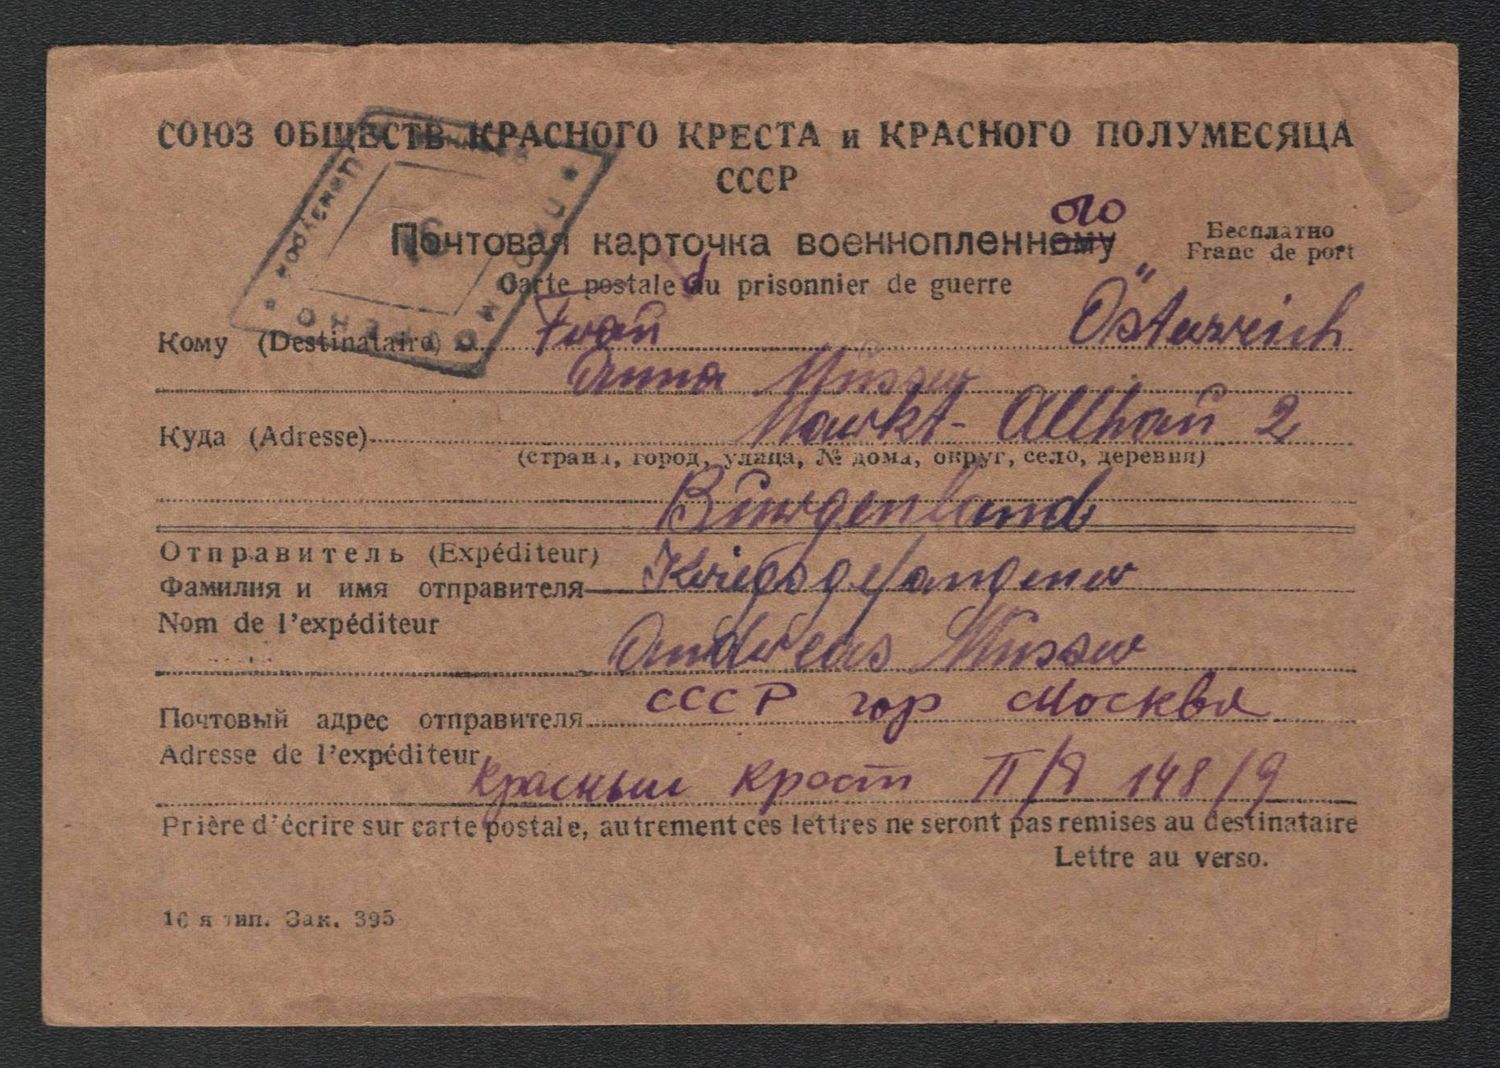 СОЮЗ ОБЩЕСТВ КРАСНОГО КРЕСТА и КРАСНОГО ПОЛУМЕСЯЦА
СССР
ого
Почтовая карточка военнопленному
Бесплатно
Carte postale du prisonnier de guerre
Franc de port
Кому (Destinataire) Frau Österreich
Anna Musser
Куда (Adresse) Markt-Allhau 2
(страна, город, улица, № дома, округ, село, деревня)
Burgenland
Отправитель (Expéditeur)
Фамилия и имя отправителя Kriegsgefangener
Nom de l'expéditeur
Andreas Musser
Почтовый адрес отправителя СССР гор Москва
Adresse de l'expéditeur
Красный крест П/Я 148/9
Prière d'écrire sur carte postale, autrement ces lettres ne seront pas remises au destinataire
Lettre au verso.
16 я тип. Зак. 395